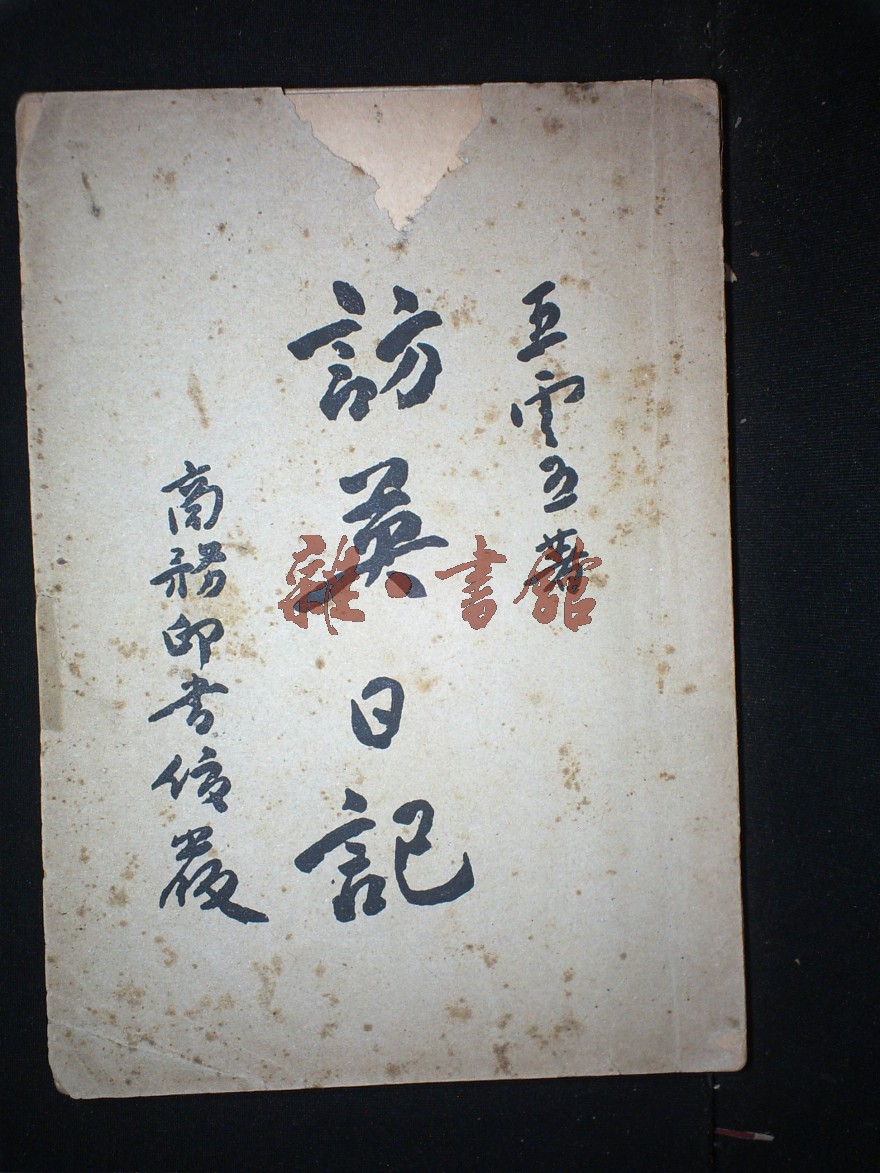 王雲五著
訪英日記
商務印書館發
雜·書館